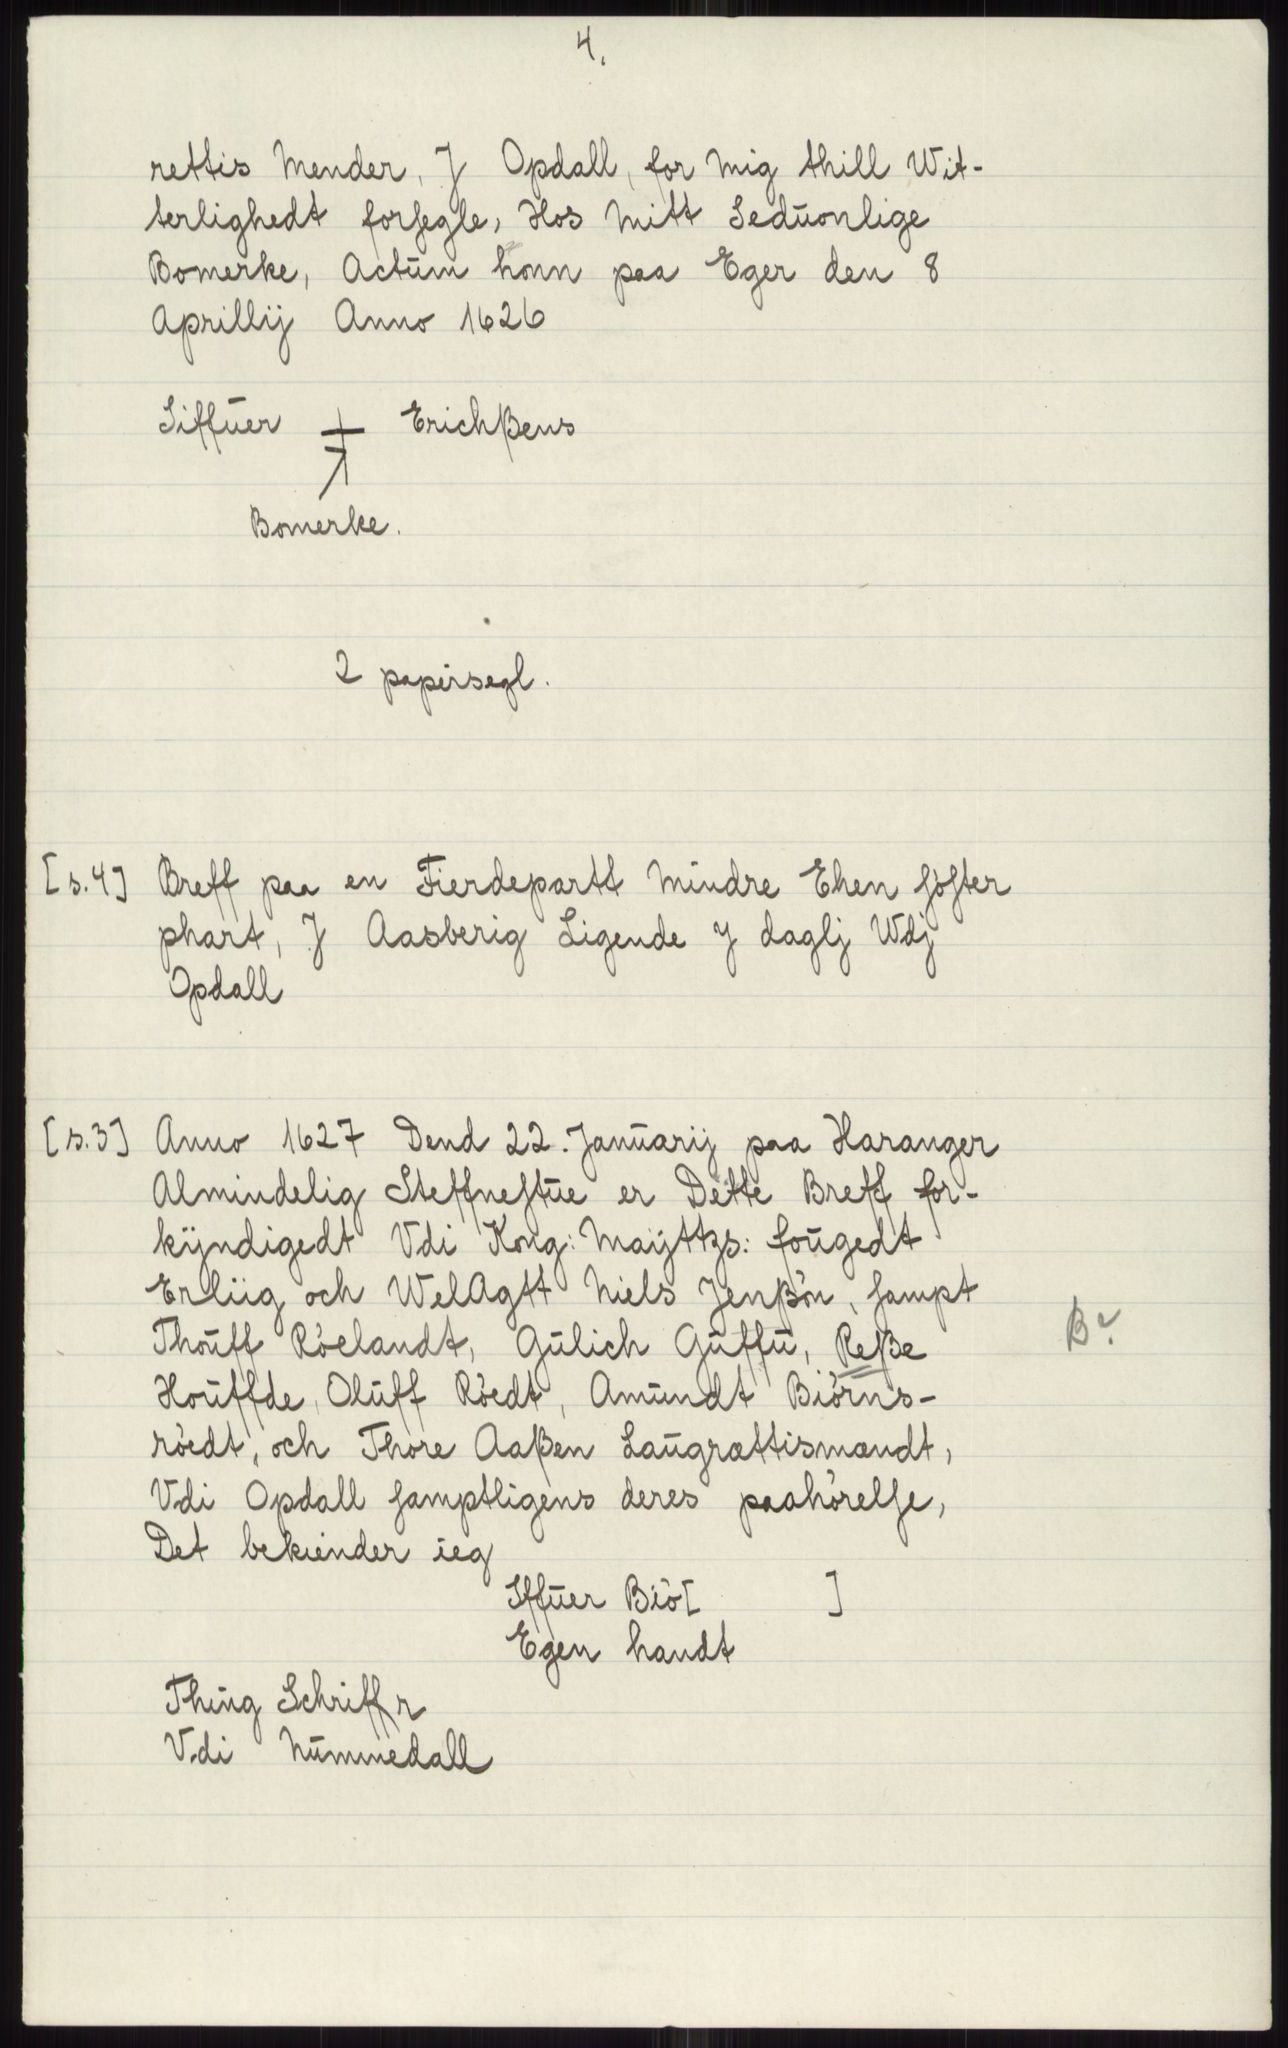 4.
rettis Mender, J Opdall, for Mig thill Wit-
terlighedt forsegle, Hos Mitt Seduonlige
Bomerke, Actum honn paa Eger den 8
Aprillij Anno 1626
Siffuer Erichßens
Bomerke.
2 papirsegl.
[s.4] Breff paa en Fierdepartt Mindre Ehen søster
phart, J Aasberig Ligende y daglj Wdj
Opdall
[s.3] Anno 1627 Dend 22. Januarij paa Haranger
Almindelig Steffnestue er Dette Breff for-
kyndigedt Vdi Kong: Mayttzs: fougedt
Erliig och WelAgtt Niels Jenßøn, sampt
Thouff Röelandt, Gulich Guffu, Reße
B?
Houffde, Oluff Röedt, Amundt Biörns-
röedt, och Thore Aaßen Laugrættismændt,
Vdi Opdall samptligens deres paahörelse,
Det bekiender ieg
Iffuer Biö[ ]
Egen handt
Thing Schriffr
Vdi Nummedall